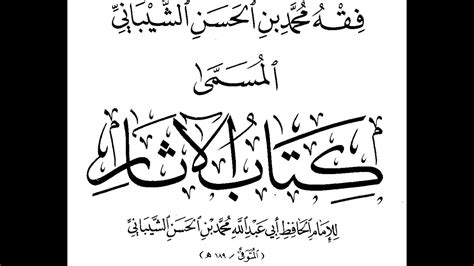 فِقْهُ مُحَمَّدِ بْنِ الْحَسَنِ الشَّيْبَانِيِّ
الْمُسَمَّى
كِتَابُ الْآثَارِ
لِلْإِمَامِ الْحَافِظِ أَبِي عَبْدِ اللَّهِ مُحَمَّدِ بْنِ الْحَسَنِ الشَّيْبَانِيِّ
(الْمُتَوَفَّى / ١٨٩ هـ)